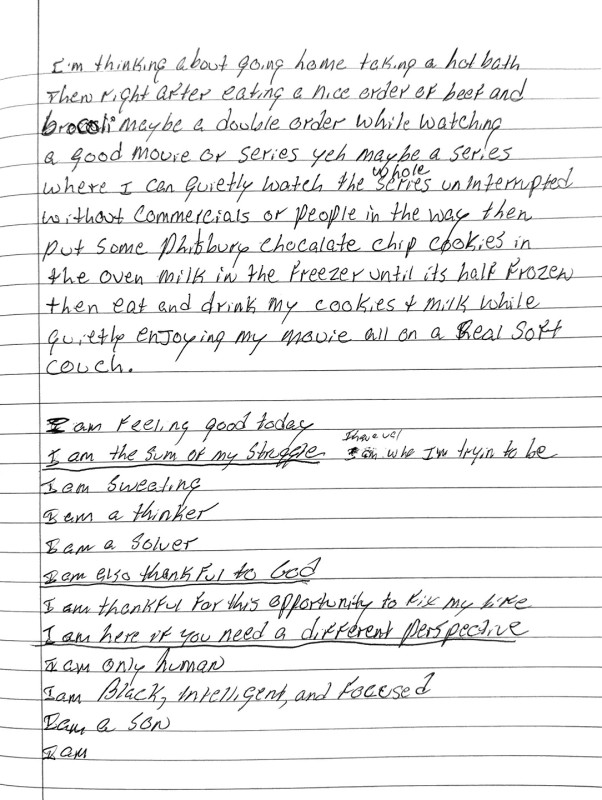 I'm thinking about going home taking a hot bath
Then right after eating a nice order of beef and
brocoli maybe a double order while watching
a good movie or series yeh maybe a series
whole
where I can quietly watch the series uninterrupted
without commercials or people in the way then
put some Philsbury chocalate chip cookies in
the oven milk in the freezer until its half frozen
then eat and drink my cookies & milk while
quietly enjoying my movie all on a Real soft
couch.
I am feeling good today
I am the sum of my struggle
who I'm tryin to be
I am sweating
I am a thinker
I am a solver
I am also thankful to God
I am thankful for this opportunity to fix my life
I am here if you need a different perspective
I am only human
I am Black, intelligent, and focused
I am a son
I am